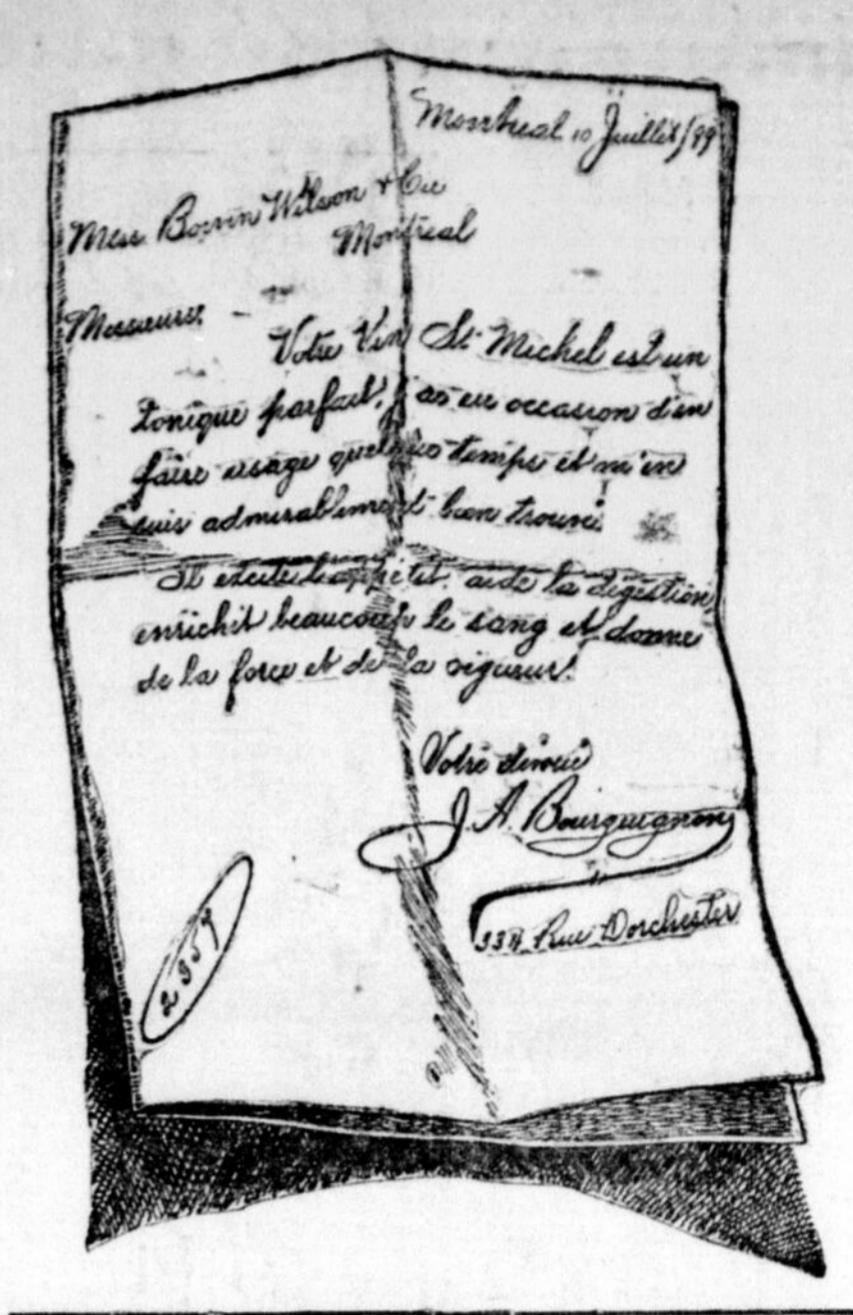 Montreal 10 Juillet/99
Mess. Boivin Wilson & Cie
Montreal
Messieurs,
Votre Vin St. Michel est un
tonique parfait, j'ai eu occasion d'en
faire usage quelque temps et m'en
suis admirablement bien trouvé.
Il excite l'appétit, aide la digestion
enrichit beaucoup le sang et donne
de la force et de la vigueur!
Votre dévoué
J. A. Bourguignon
334 Rue Dorchester
2959